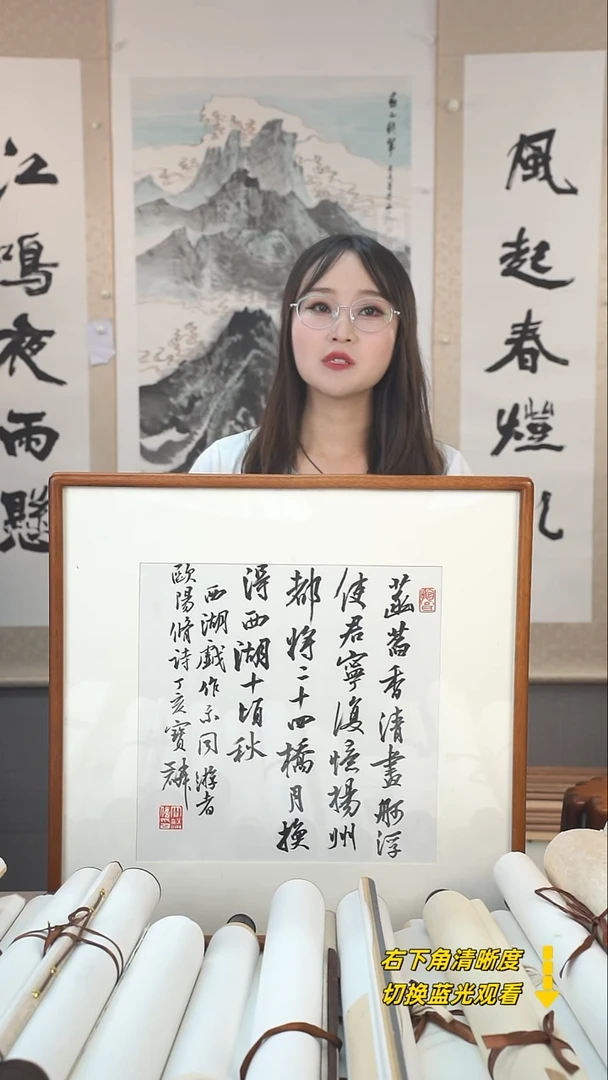 風起春燈
江鳴夜雨懸
菡萏香清畫舸浮
使君寧復憶揚州
都將二十四橋月換
得西湖十頃秋
西湖戲作示同遊者
歐陽脩詩丁亥寶麟
右下角清晰度
切换蓝光观看